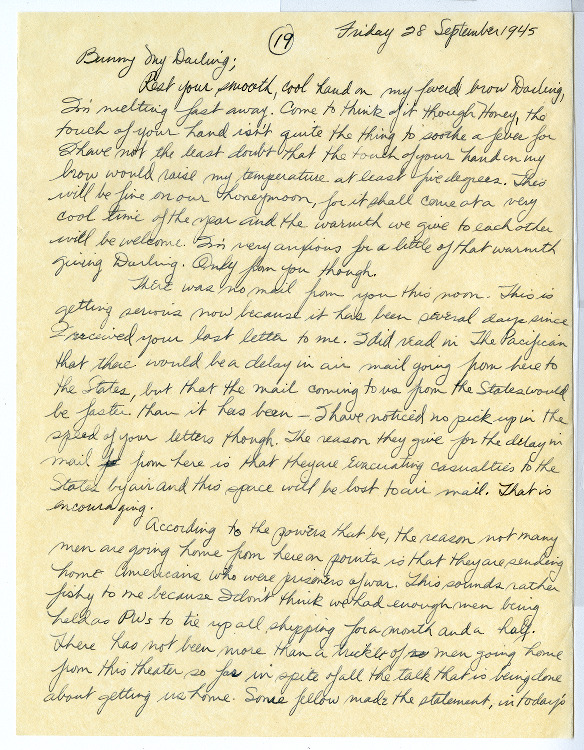 19
Friday 28 September 1945
Bunny My Darling;
Rest your smooth, cool hand on my fevered brow Darling,
I'm melting fast away. Come to think of it though Honey, the
touch of your hand isn't quite the thing to soothe a fever for
I have not the least doubt that the touch of your hand on my
brow would raise my temperature at least five degrees. This
will be fine on our honeymoon, for it shall come at a very
cool time of the year and the warmth we give to each other
will be welcome. I'm very anxious for a little of that warmth
giving Darling. Only from you though.
There was no mail from you this noon. This is
getting serious now because it has been several days since
I received your last letter to me. I did read in The Pacifican
that there would be a delay in air mail going from here to
the States, but that the mail coming to us from the States would
be faster than it has been — I have noticed no pick up in the
speed of your letters though. The reason they give for the delay in
mail from here is that they are evacuating casualties to the
States by air and this space will be lost to air mail. That is
encouraging.
According to the powers that be, the reason not many
men are going home from here on points is that they are sending
home Americans who were prisoners of war. This sounds rather
fishy to me because I don't think we had enough men being
held as PWs to tie up all shipping for a month and a half.
There has not been more than a trickle of men going home
from this theater so far in spite of all the talk that is being done
about getting us home. Some fellow made the statement, in today's